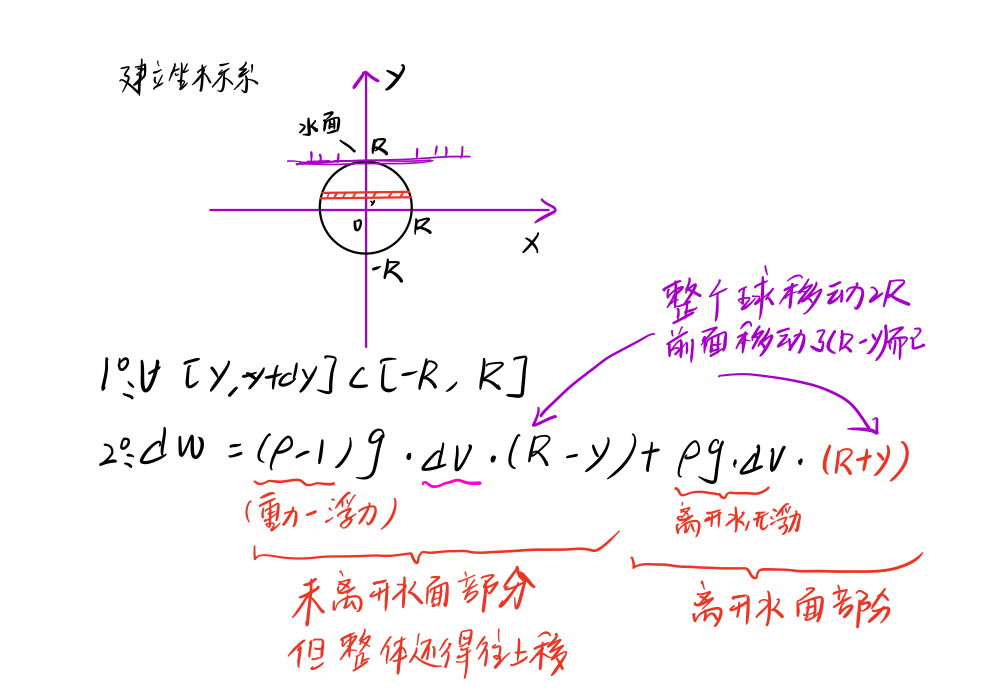 建立坐标系
y
水面
R
y
O
R
x
-R
整个球移动2R
前面移动了(R-y)而已
1°∴∀ [y,y+dy]⊂[-R, R]
2°∴dw = (ρ-1)g·dv·(R-y)+ρg·dv·(R+y)
(重力-浮力)
离开水,无浮力
未离开水面部分
但整体还得往上移
离开水面部分